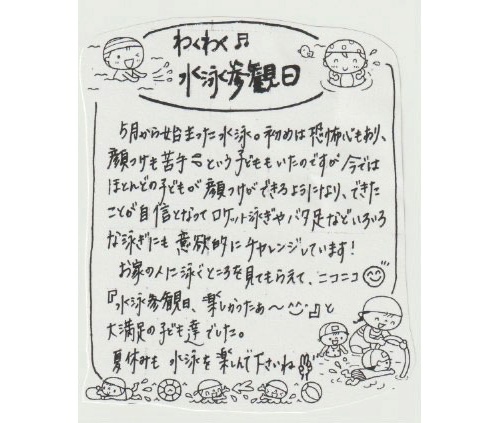 わくわく♫
水泳参観日
5月から始まった水泳。初めは恐怖心もあり、
顔つけも苦手…という子どももいたのですが今では
ほとんどの子どもが顔つけができるようになり、できた
ことが自信となってロケット泳ぎやバタ足などいろいろ
な泳ぎにも意欲的にチャレンジしています!
お家の人に泳ぐところを見てもらえて、ニコニコ
『水泳参観日、楽しかったぁ〜』と
大満足の子ども達でした。
夏休みも水泳を楽しんで下さいね!!